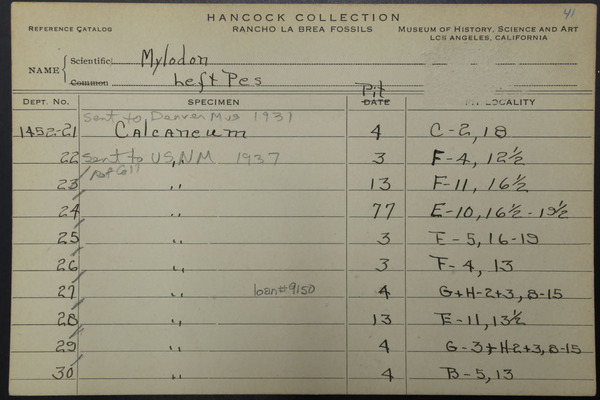 41
HANCOCK COLLECTION
REFERENCE CATALOG RANCHO LA BREA FOSSILS MUSEUM OF HISTORY, SCIENCE AND ART
LOS ANGELES, CALIFORNIA
NAME Scientific Mylodon
Common Left Pes
DEPT. No. SPECIMEN Pit DATE LOCALITY
Sent to Denver Mus 1931
1452-21 Calcaneum 4 C-2, 18
22 Sent to USNM 1937 " 3 F-4, 12½
23 " 13 F-11, 16½
24 " 77 E-10, 16½-19½
25 " 3 E-5, 16-19
26 " 3 F-4, 13
27 " loan#9150 4 G+H-2+3, 8-15
28 " 13 E-11, 13½
29 " 4 G-3+H2+3, 8-15
30 " 4 B-5, 13